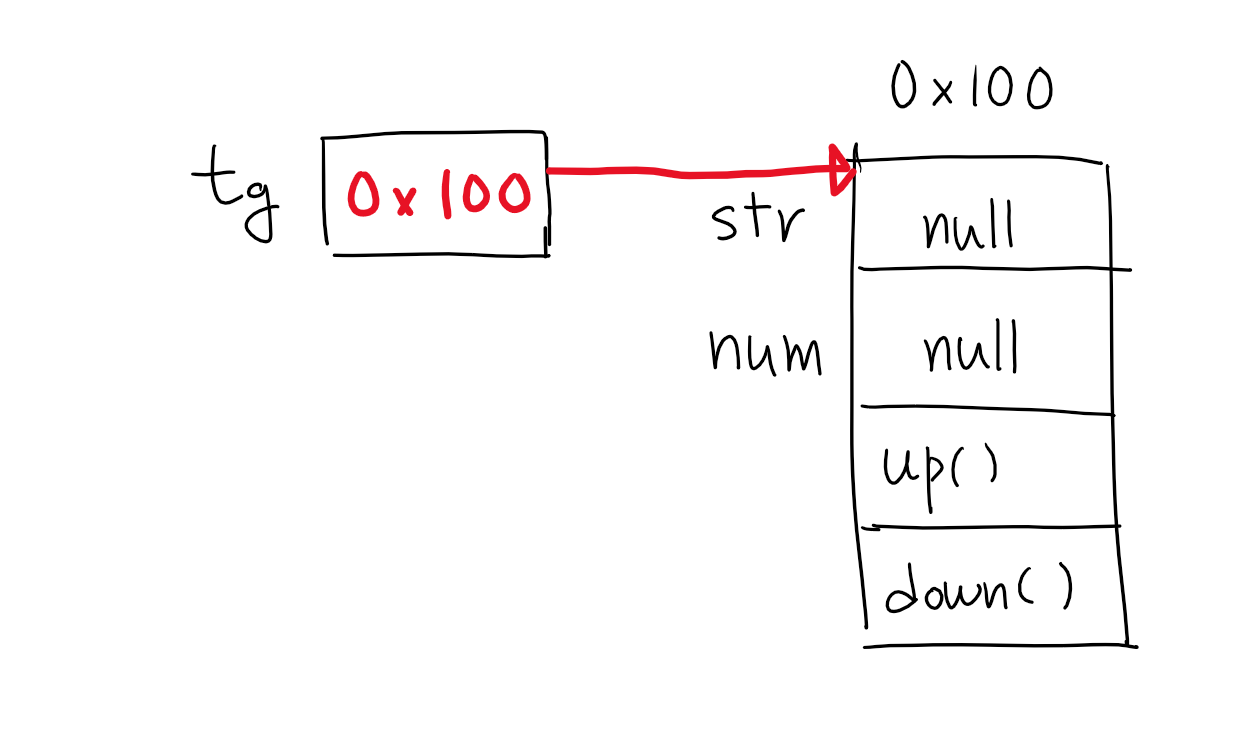 0x100
tg 0x100
str null
num null
up()
down()